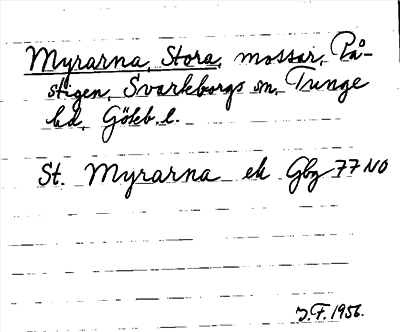 Myrarna, Stora, mossar, På-
stigen, Svarteborgs sn, Tunge
hd, Göteb. l.
St. Myrarna ek Gbg 77 NO
J.F. 1956.